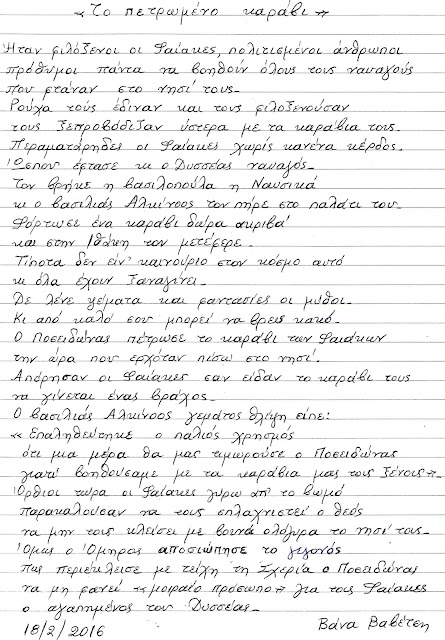 «Το πετρωμένο καράβι»
Ήταν φιλόξενοι οι Φαίακες, πολιτισμένοι άνθρωποι
πρόθυμοι πάντα να βοηθούν όλους τους ναυαγούς
που φτάναν στο νησί τους.
Ρούχα τούς έδιναν και τους φιλοξενούσαν
τους ξεπροβόδιζαν ύστερα με τα καράβια τους.
Περαματάρηδες οι Φαίακες χωρίς κανένα κέρδος.
Ώσπου έφτασε κι ο Δυσσέας ναυαγός.
Τον βρήκε η βασιλοπούλα η Ναυσικά
κι ο βασιλιάς Αλκίνοος τον πήρε στο παλάτι του.
Φόρτωσε ένα καράβι δώρα ακριβά
και στην Ιθάκη τον μετέφερε.
Τίποτα δεν είν' καινούριο στον κόσμο αυτό
κι όλα έχουν ξαναγίνει.
Δε λένε ψέματα και φαντασίες οι μύθοι.
Κι από καλό σου μπορεί να βρεις κακό.
Ο Ποσειδώνας πέτρωσε το καράβι των Φαιάκων
την ώρα που ερχόταν πίσω στο νησί.
Απόρησαν οι Φαίακες σαν είδαν το καράβι τους
να γίνεται ένας βράχος.
Ο βασιλιάς Αλκίνοος γεμάτος θλίψη είπε:
«Επαληθεύτηκε ο παλιός χρησμός
ότι μια μέρα θα μας τιμωρούσε ο Ποσειδώνας
γιατί βοηθούσαμε με τα καράβια μας τους ξένους».
Όρθιοι τώρα οι Φαίακες γύρω απ' το βωμό
παρακαλούσαν να τους σπλαχνιστεί ο θεός
να μην τους κλείσει με βουνά ολόγυρα το νησί τους.
Όμως ο Όμηρος αποσιώπησε το γεγονός
πως περιέκλεισε με τείχη τη Σχερία ο Ποσειδώνας
να μη φανεί «μοιραίο πρόσωπο» για τους Φαίακες
ο αγαπημένος του Δυσσέας.
18/2/2016 Βάνα Βαβέτση